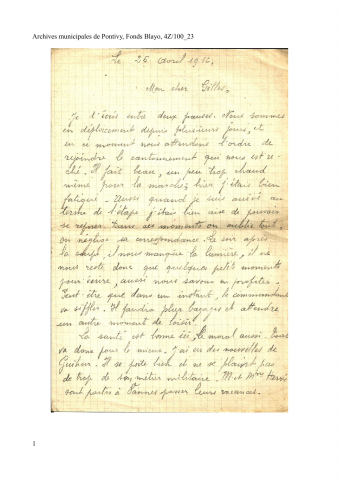 Archives municipales de Pontivy, Fonds Blayo, 4Z/100_23
Le 26 avril 1916.
Mon cher Gilles,
Je t'écris entre deux pauses. Nous sommes
en déplacement depuis plusieurs jours, et
en ce moment nous attendons l'ordre de
rejoindre le cantonnement qui nous est
ché. Il fait beau, un peu trop chaud
même pour la marche; hier j'étais bien
fatigué. Aussi quand je suis arrivé au
terme de l'étape j'étais bien aise de pouvoir
se reposer. Dans ces moments on oublie tout,
on néglige sa correspondance. Le soir après
la soupe, il nous manque la lumière, il ne
nous reste donc que quelques petits moments
pour écrire, aussi nous savons en profiter.
Peut-être que dans un instant, le commandant
va siffler. Il faudra plier bagages et attendre
un autre moment de loisir.
La santé est bonne ici, le moral aussi. Tout
va donc pour le mieux. J'ai eu des nouvelles de
Il se porte bien et ne se plaint pas
de trop de son métier militaire. M et Mme
sont partis à Vannes passer leurs vacances.
1